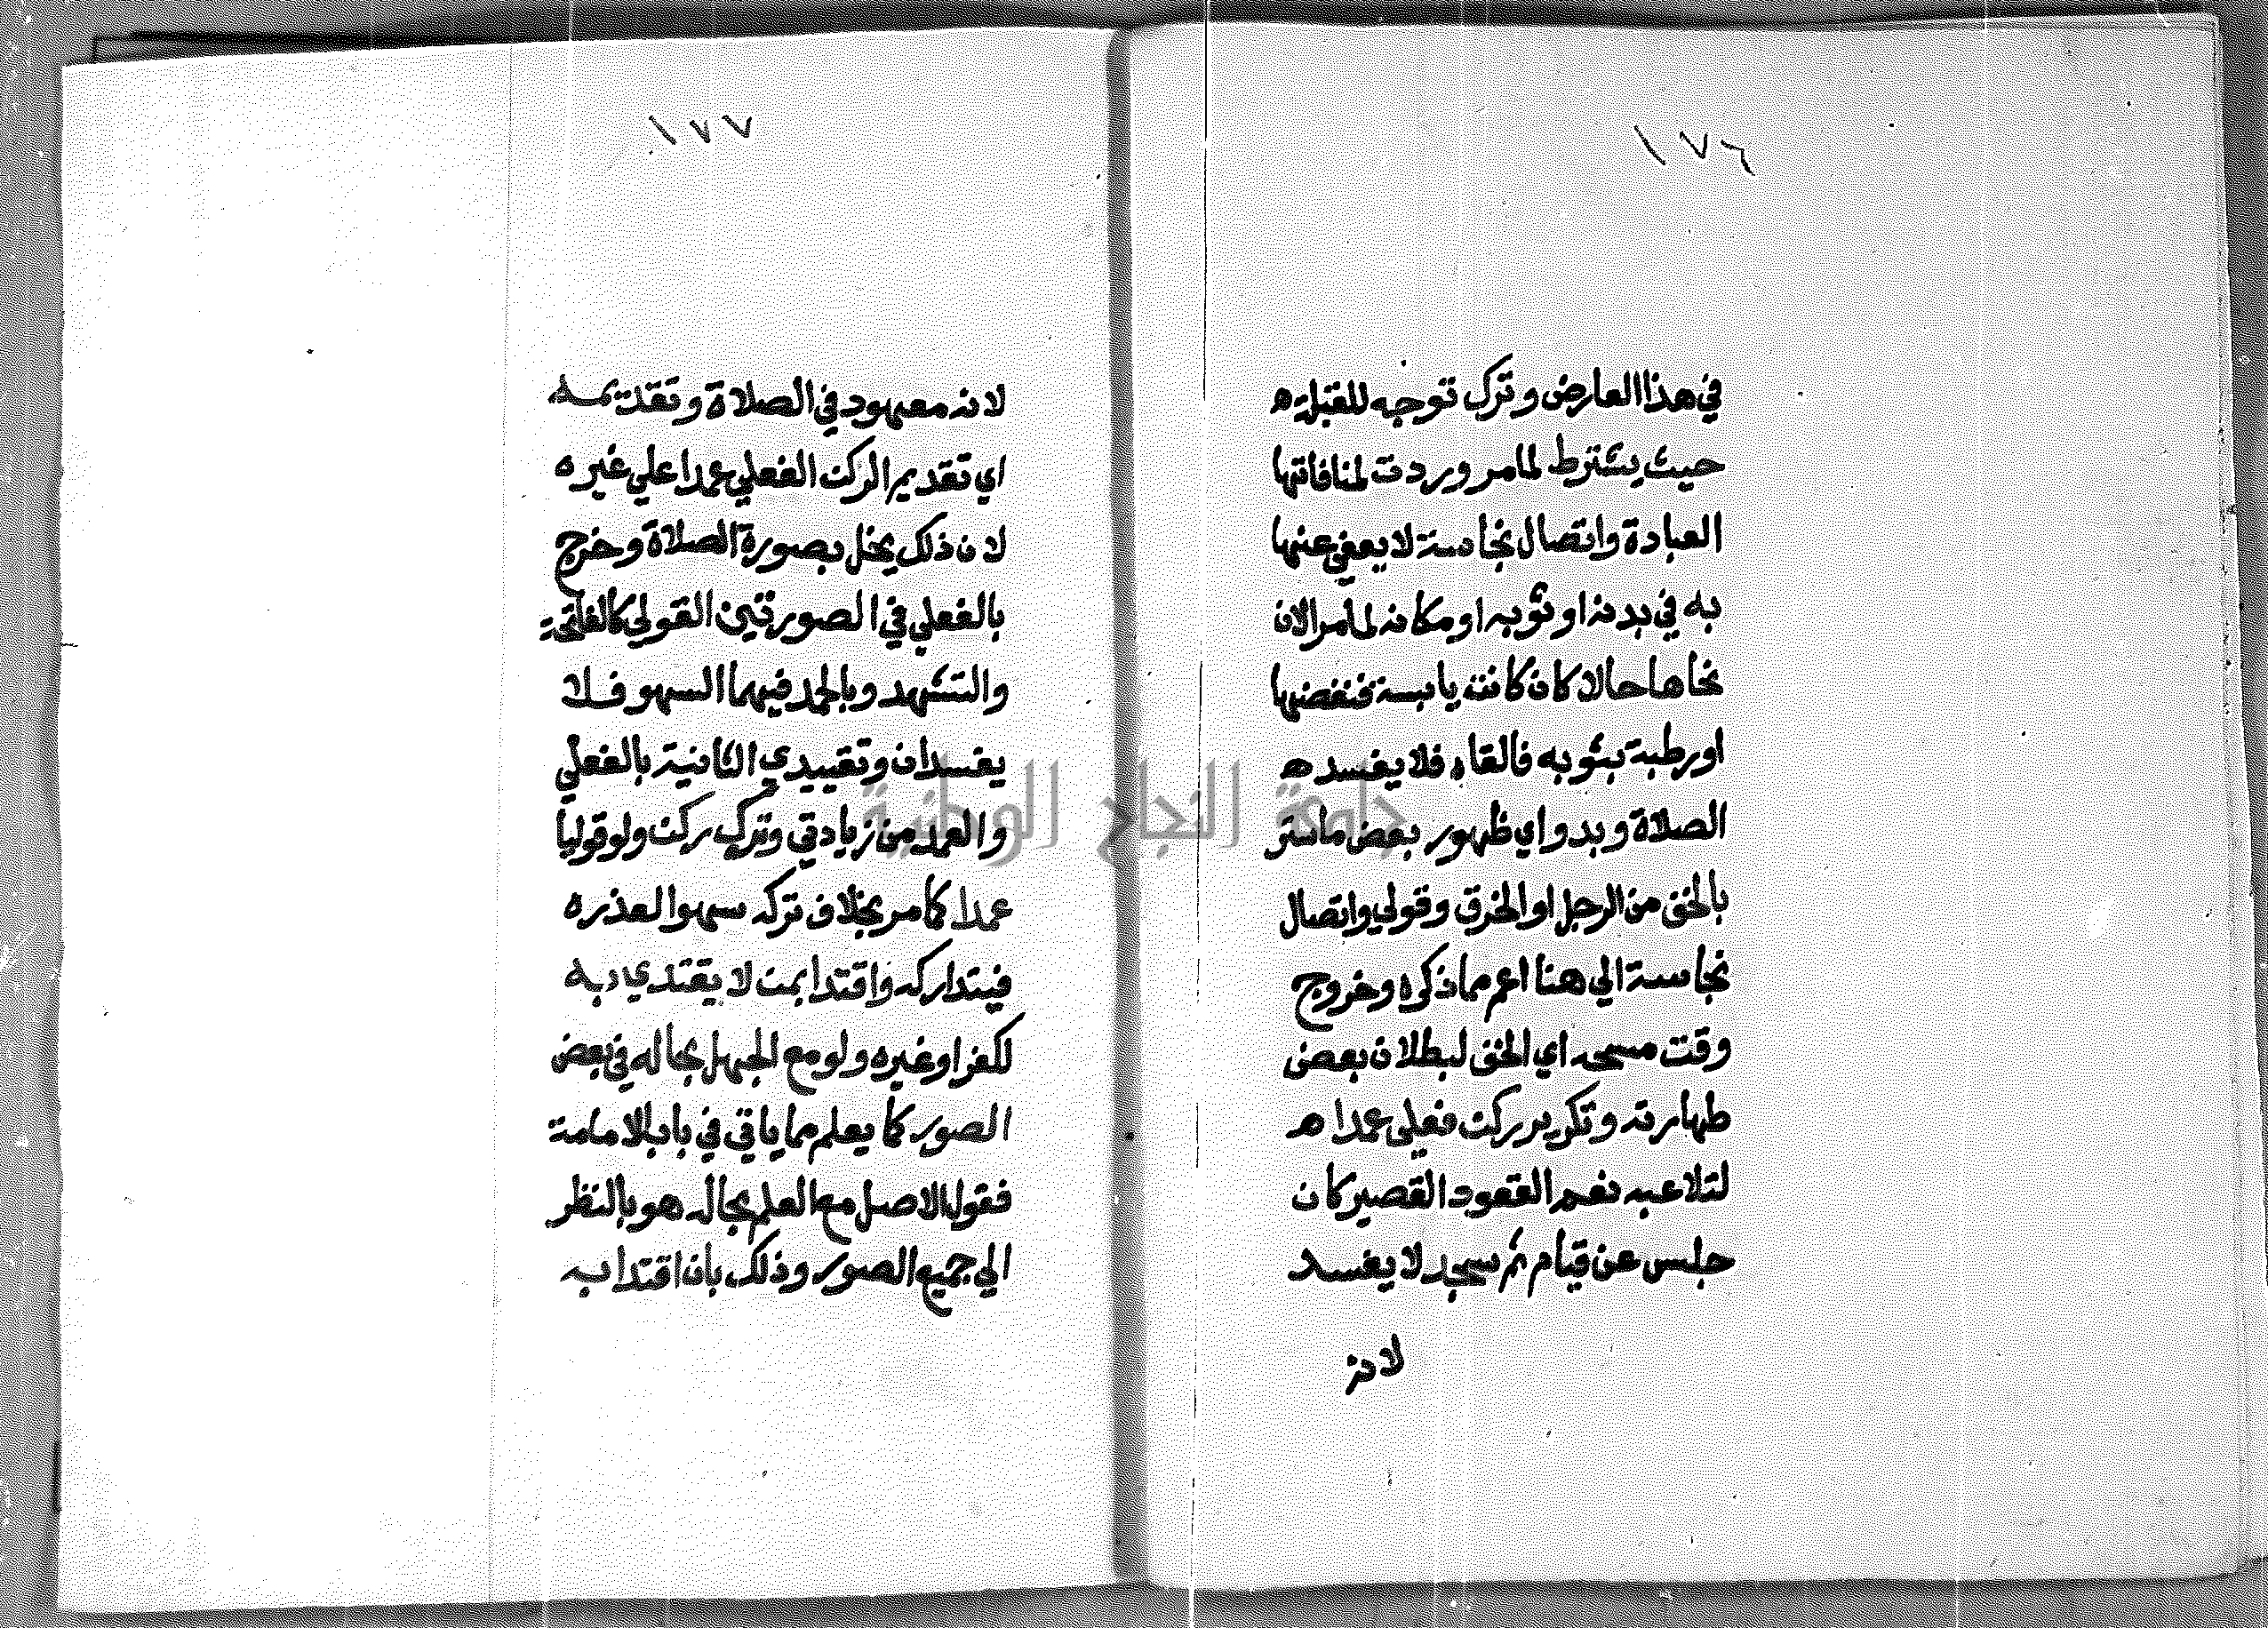 ١٧٦
في هذا العارض وترك توجه للقبلة ه
حيث يشترط لما مر وردت لمنافاتها
العبادة واتصال نجاسة لا يعفي عنها
به في بدنه او ثوبه او مكانه لما مر الا ان
نحاها حالا كان كانت يابسة فنفضها
او رطبة بثوبه فالقاه فلا يفسد ه
الصلاة وبدو اي ظهور بعض ما ستر
بالخف من الرجل او الخرق وقولي واتصال
نجاسة الي هنا اعم مما ذكره وخروج
وقت مسحه اي الخف لبطلان بعض
طهارته وتكرير ركن فعلي عمدا ه
لتلاعبه نعم القعود القصير كان
جلس عن قيام ثم سجد لا يفسد
لانه
١٧٧
لانه معهود في الصلاة وتقديمه
اي تقديم الركن الفعلي عمدا علي غيره
لان ذلك يخل بصورة الصلاة وخرج
بالفعلي في الصورتين القولي كالفاتحة
والتشهد وبالعمد فيهما السهو فلا
يفسدان وتقييدي الثانية بالفعلي
والعمد من زيادتي وترك ركن ولو قوليا
عمدا كما مر بخلاف تركه سهوا لعذره
فيتداركه واقتدا بمن لا يقتدي به
لكفر او غيره ولو مع الجهل بحاله في بعض
الصور كما يعلم مما ياتي في باب الامامة
فقول الاصل مع العلم بحاله هو بالنظر
الي جميع الصور وذلك بان اقتدا به
جامعة النجاح الوطنية